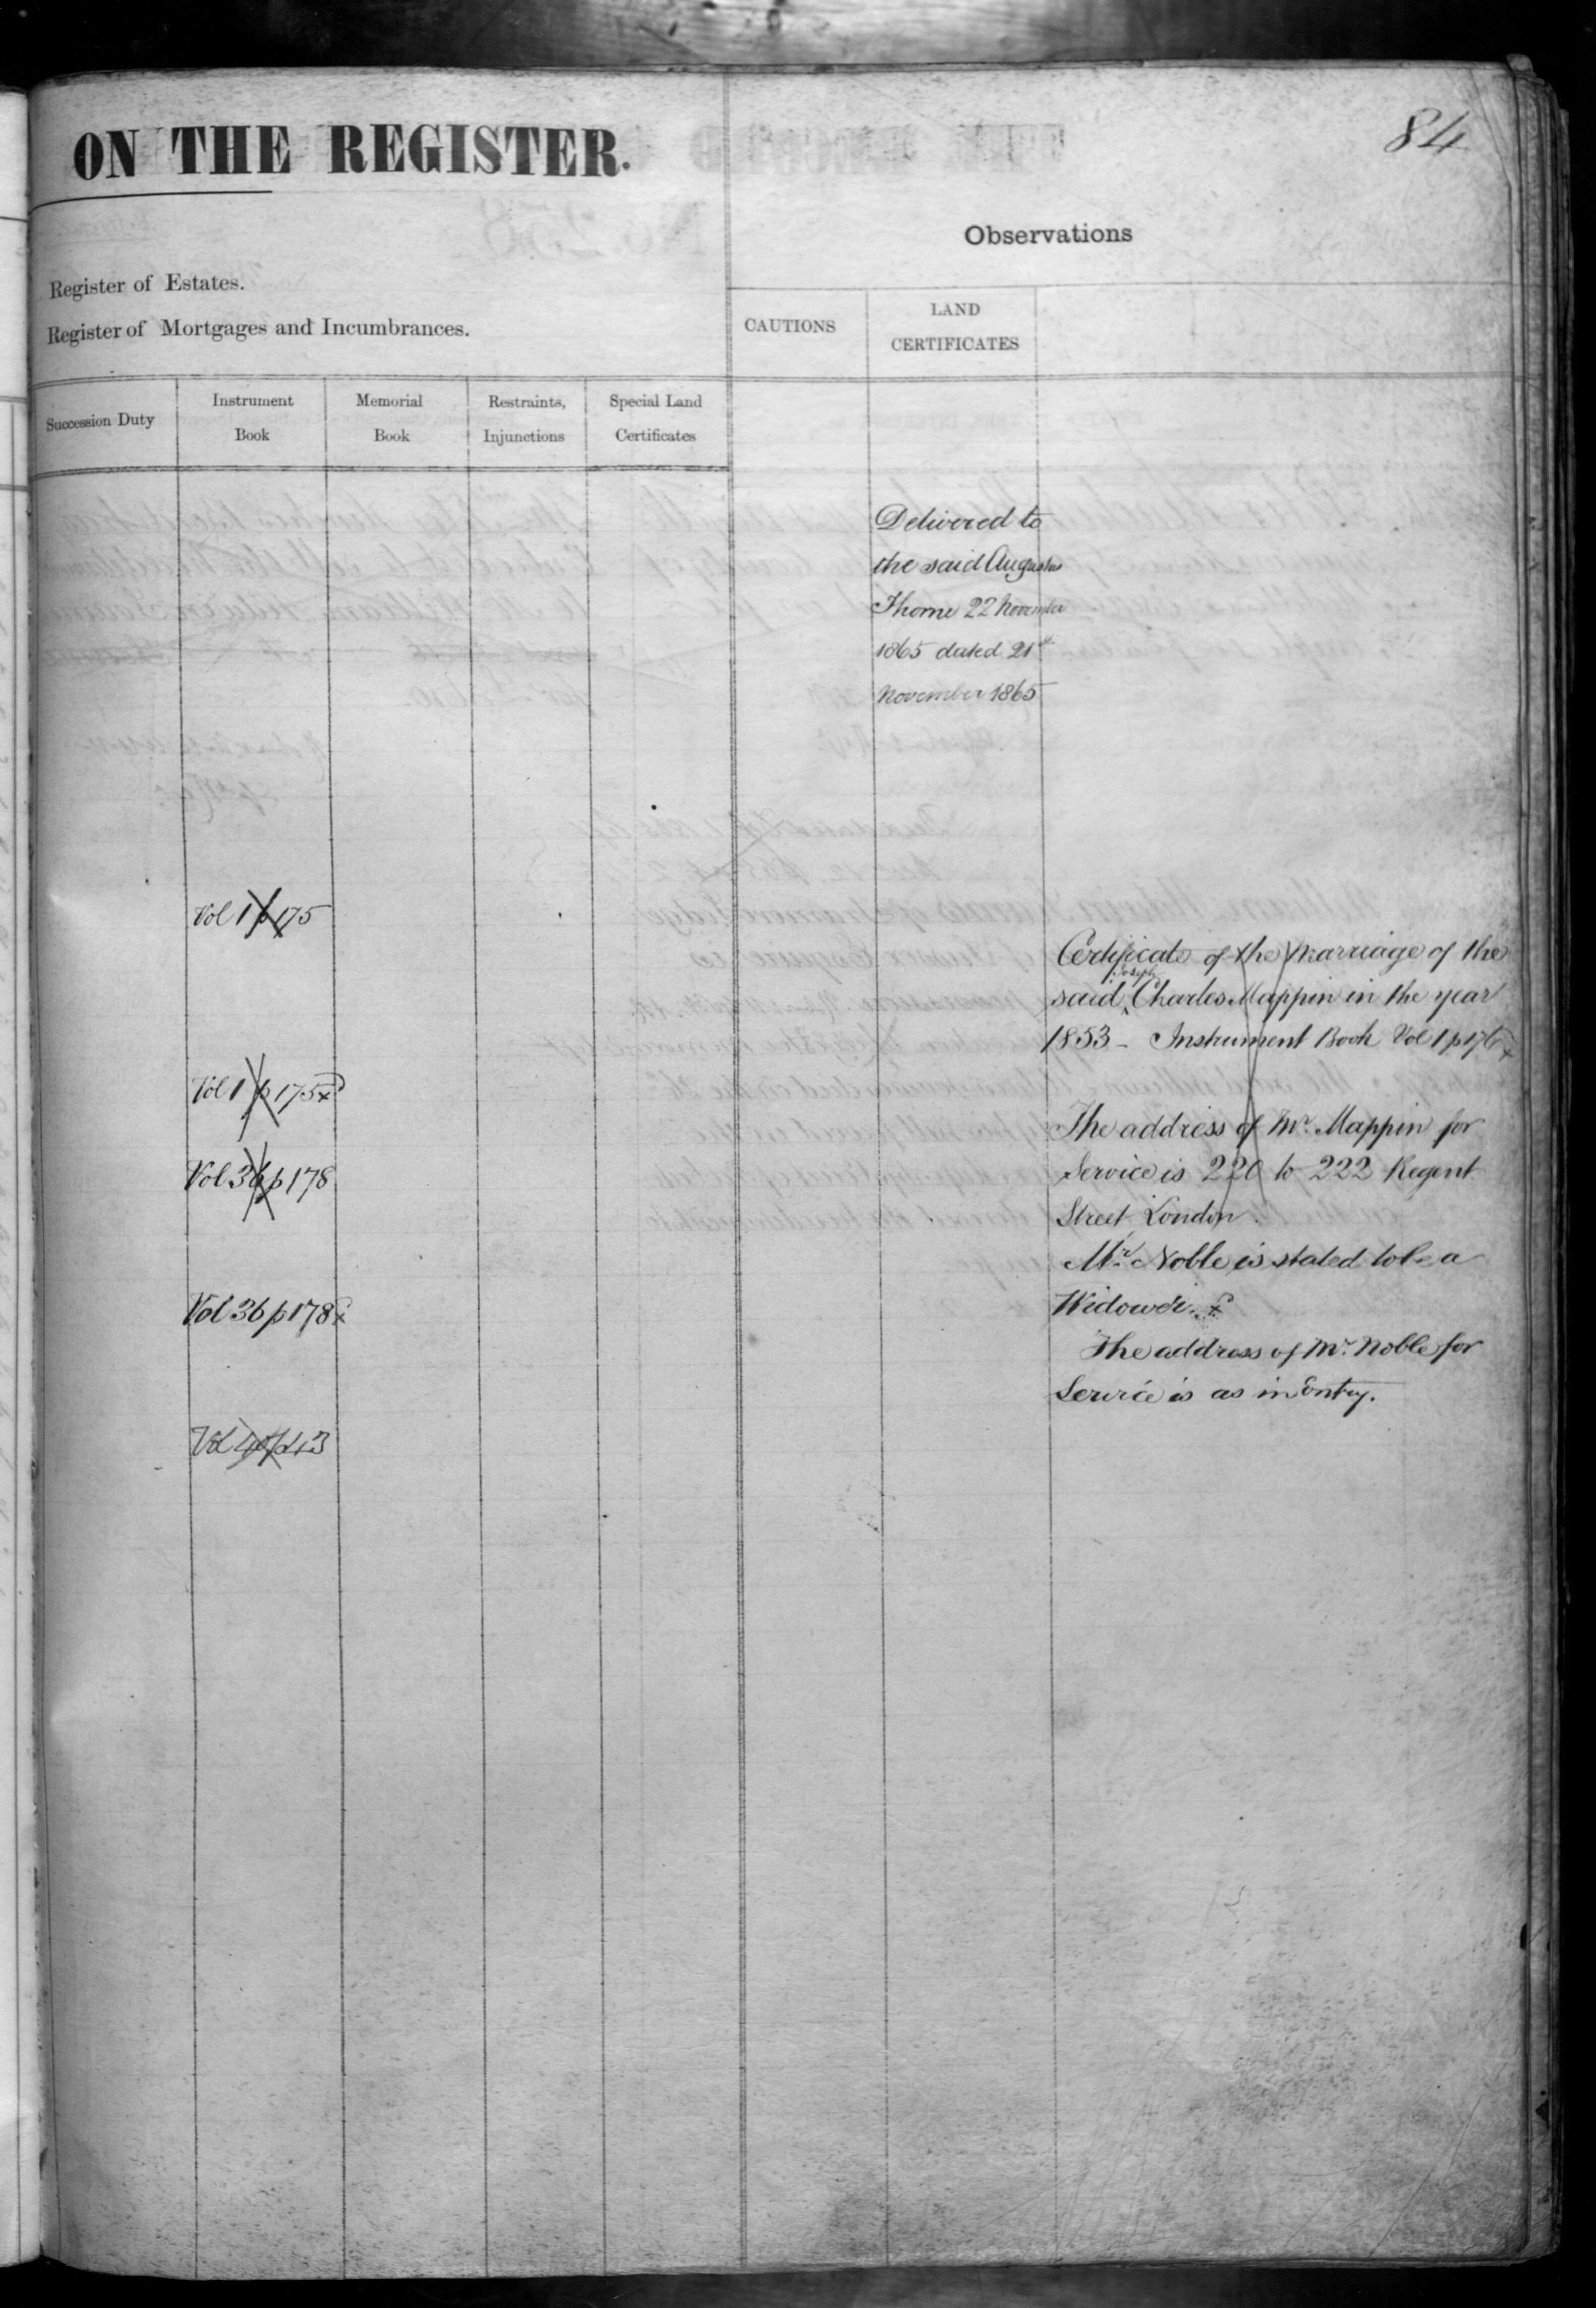 84
ON THE REGISTER.
Observations
Register of Estates.
Register of Mortgages and Incumbrances.
CAUTIONS
LAND
CERTIFICATES
Succession Duty
Instrument
Book
Memorial
Book
Restraints,
Injunctions
Special Land
Certificates
Delivered to
the said Augustus
Thorne 22 November
1865 dated 21st
November 1865
Vol 1 p 175
Certificate of the Marriage of the
Joseph
said Charles Mappin in the year
1853 - Instrument Book Vol 1 p 176
Vol 1 p 175
The address of Mr. Mappin for
Service is 220 to 222 Regent
Street London.
Vol 36 p 178
Mr. Noble is stated to be a
Widower.
Vol 36 p 178
The address of Mr. Noble for
Service is as in Entry.
Vol p 43